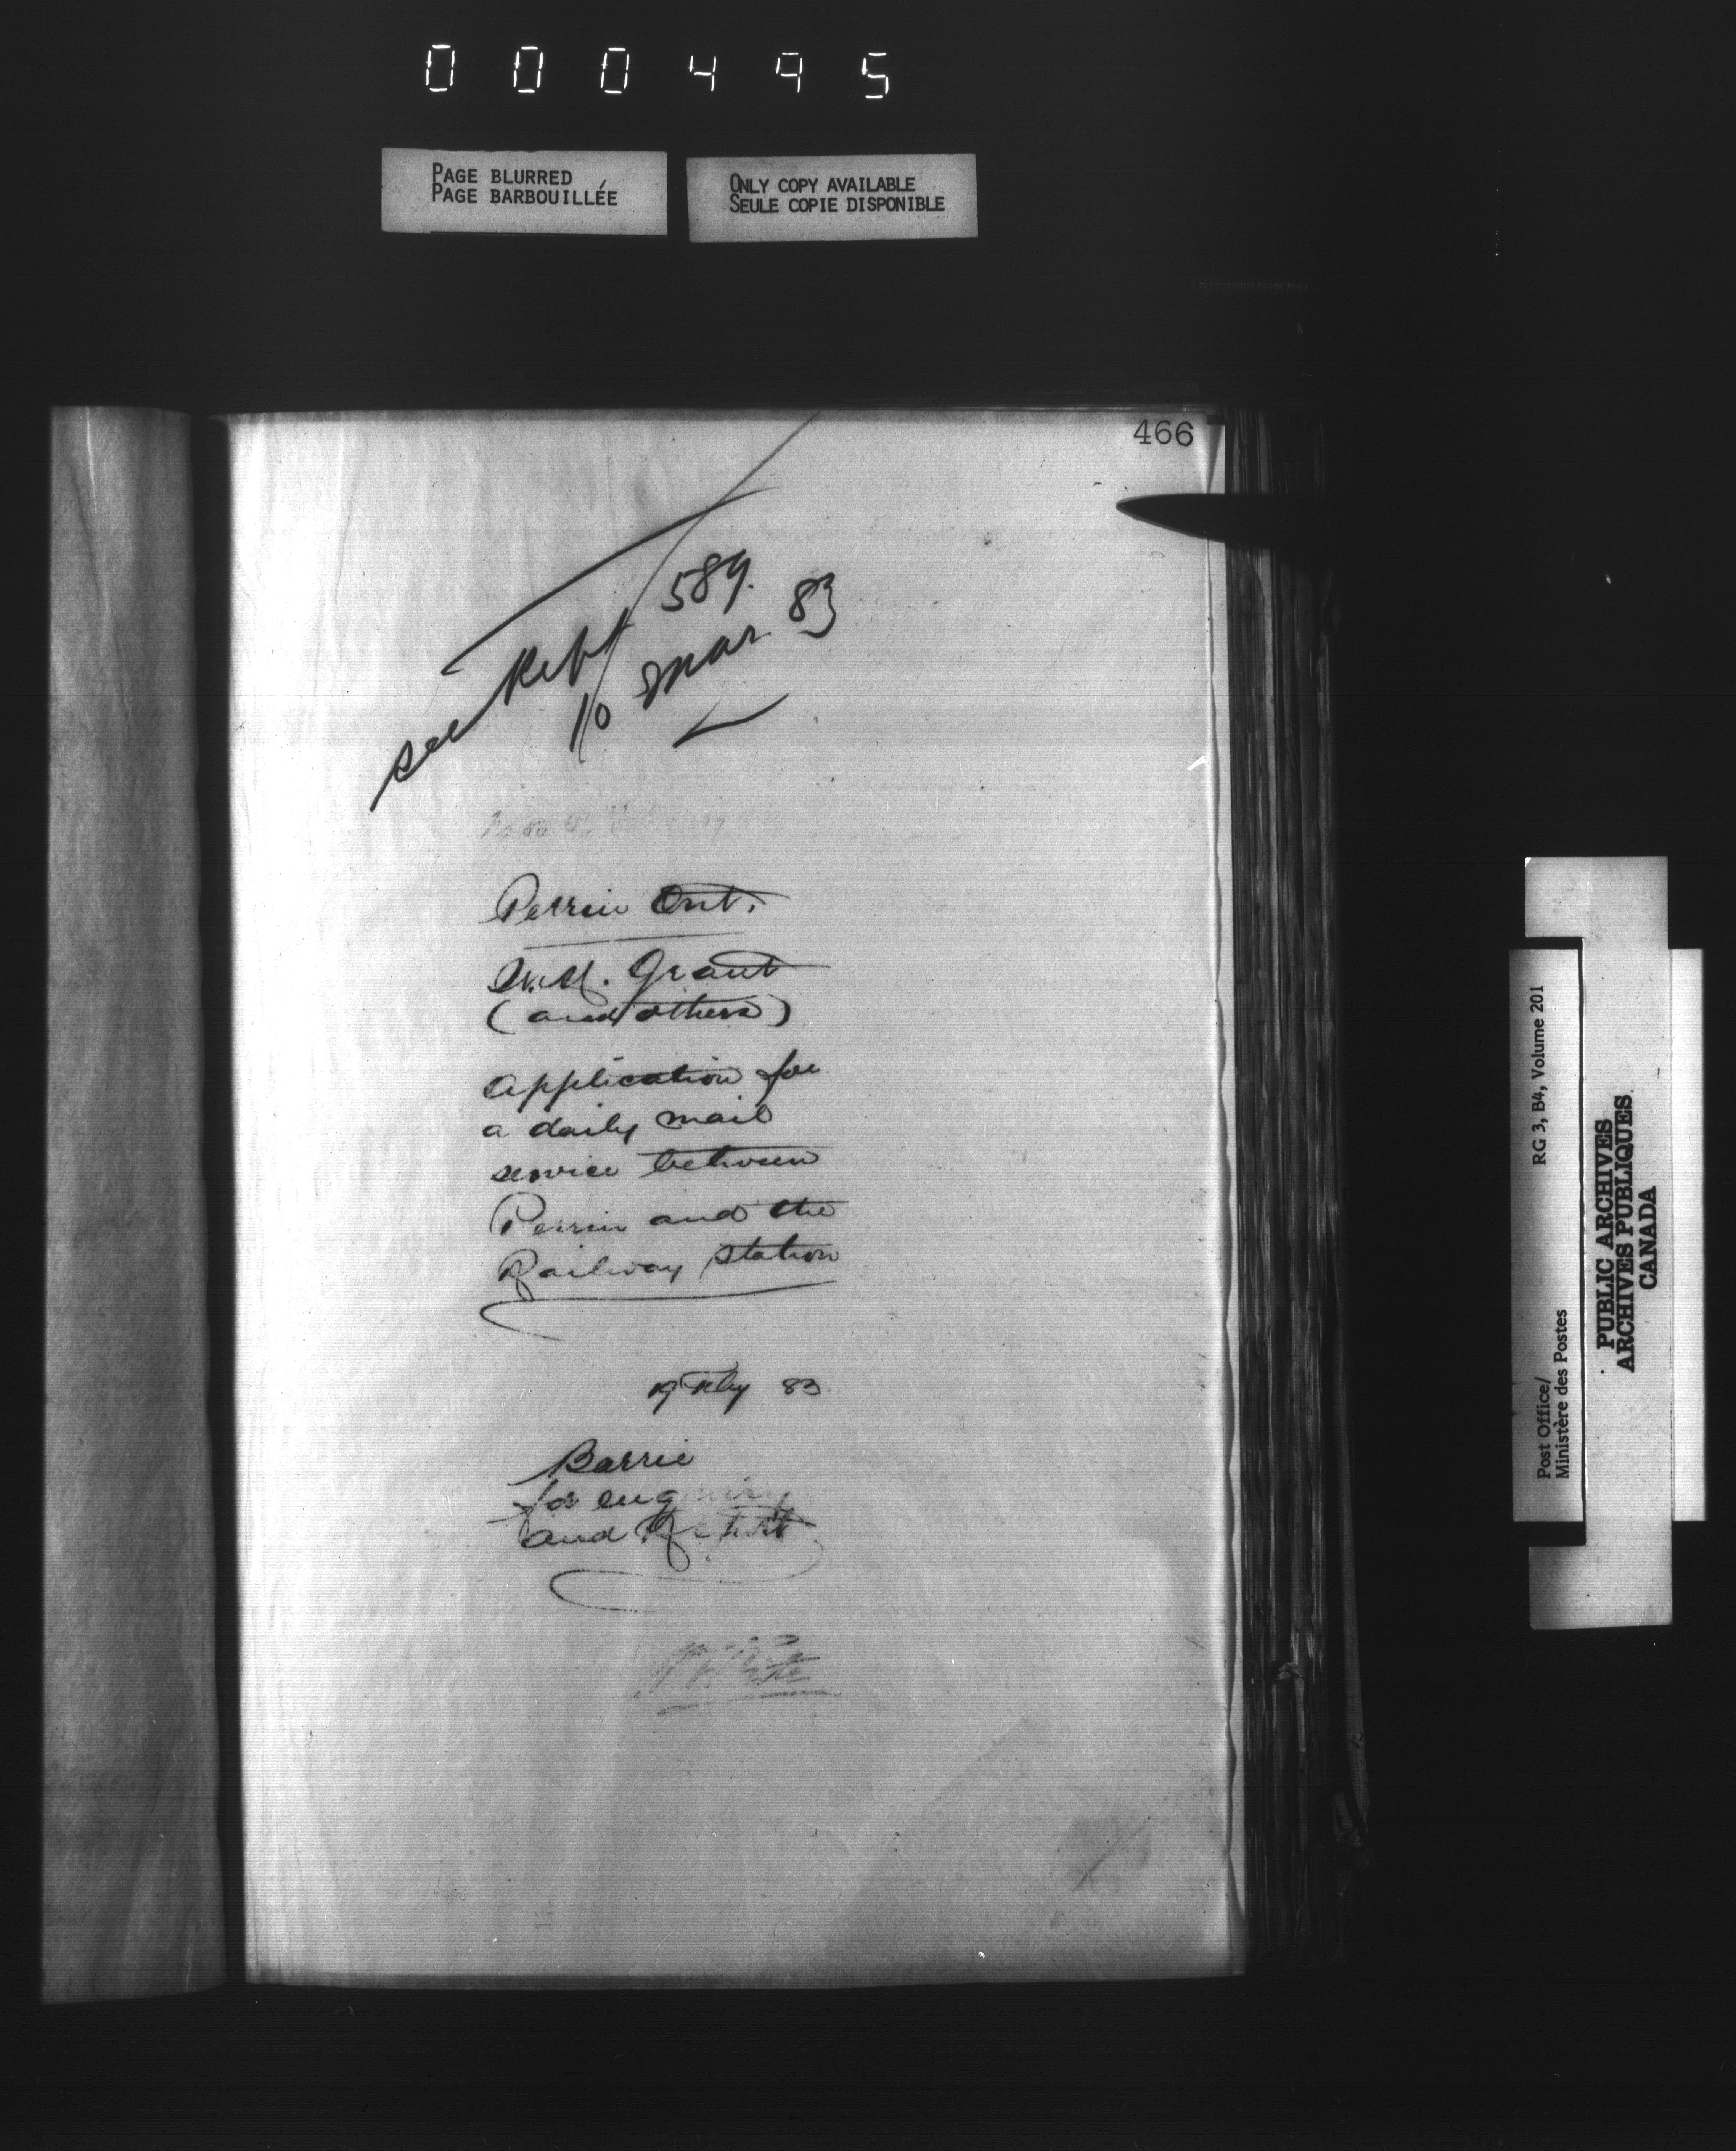 000495
PAGE BLURRED
PAGE BARBOUILLÉE
ONLY COPY AVAILABLE
SEULE COPIE DISPONIBLE
466
see Rept 589.
10 Mar 83
Perrin Ont.
Grant
(and others)
Application for
a daily mail
service between
Perrin and the
Railway Station
19 Feby 83
Barrie
for enquiry
and Report
RG 3, B4, Volume 201
Post Office/
Ministère des Postes
PUBLIC ARCHIVES
ARCHIVES PUBLIQUES
CANADA